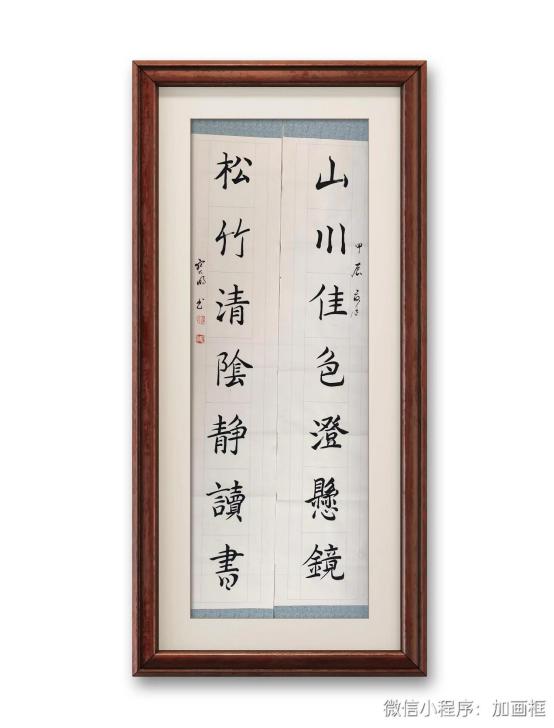 山川佳色澄懸鏡
甲辰
松竹清陰静讀書
書
微信小程序：加画框